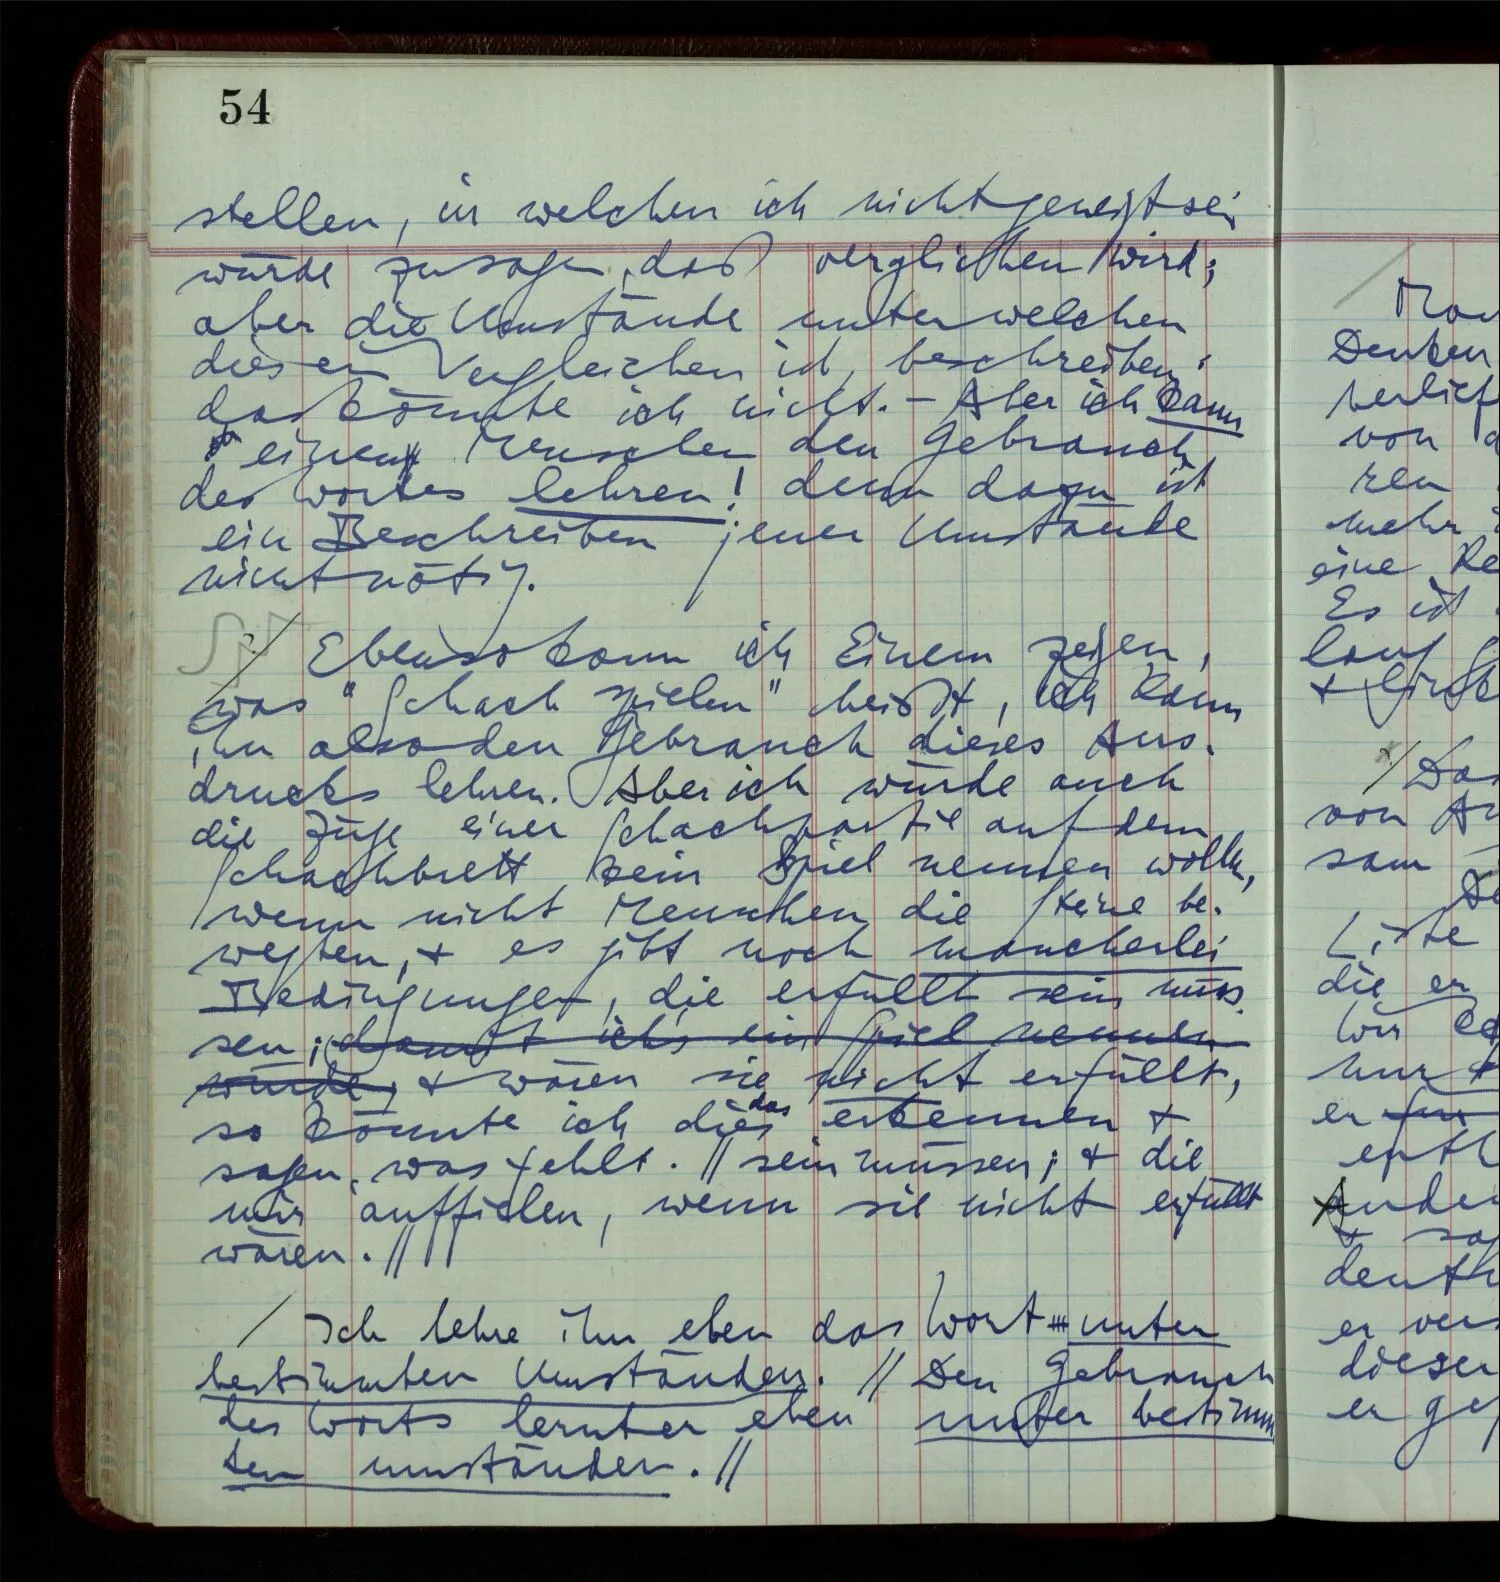 54
stellen, in welchen ich nicht geneigt sein
würde zu sagen, daß verglichen wird;
aber die Umstände unter welchen
dies ein Vergleichen ist, beschreiben:
das könnte ich nicht. – Aber ich kann
einen Menschen den Gebrauch
des Wortes lehren! denn dazu ist
ein Beschreiben jener Umstände
nicht nötig.
/ Ebenso kann ich Einem zeigen,
was "Schach spielen" heißt, ich kann
ihn also den Gebrauch dieses Aus-
drucks lehren. Aber ich würde auch
die Züge einer Schachpartie auf dem
Schachbrett kein Spiel nennen wollen,
wenn nicht Menschen die Steine be-
wegten, & es gibt noch mancherlei
Bedingungen, die erfüllt sein müs-
sen; damit ich's ein Spiel nennen
würde; & wären sie nicht erfüllt,
so könnte ich dies das erkennen &
sagen, was fehlt. // sein müssen; & die
mir auffielen, wenn sie nicht erfüllt
wären. //
/ Ich lehre ihn eben das Wort unter
bestimmten Umständen. // Den Gebrauch
des Worts lernt er eben unter bestimm
ten Umständen. //
Denken
von
mehr
eine
Es ist
von
sam
Liste
die er
Wir
nur
er
er
dieser
er